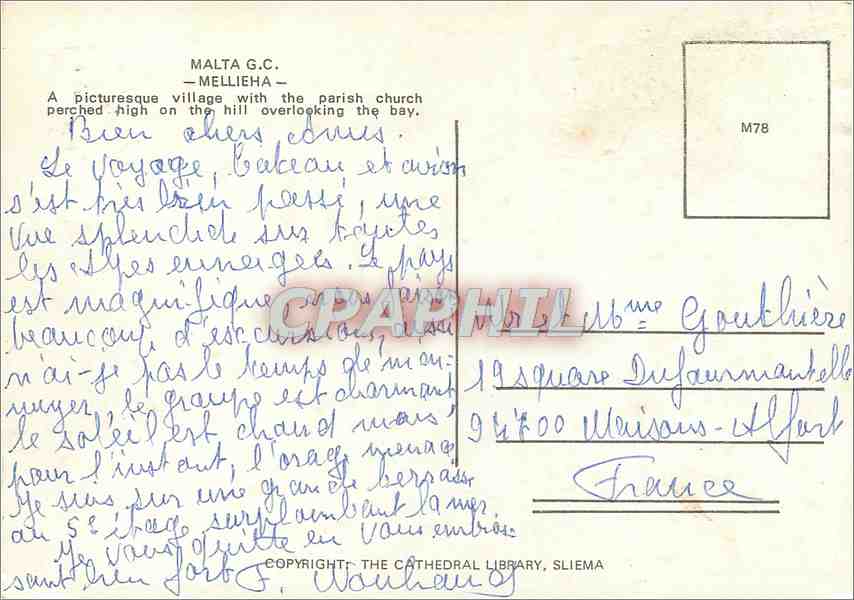 MALTA G.C.
— MELLIEHA —
A picturesque village with the parish church
perched high on the hill overlooking the bay.
M78
Bien chers Amis.
Le voyage, bateau et avion
s'est très bien passé, une
vue splendide sur toutes
les Alpes enneigées. Le pays
est magnifique, nous faisons
beaucoup d'excursions, aussi
n'ai-je pas le temps de m'en-
nuyer, le groupe est charmant
le soleil est chaud mais
pour l'instant, l'orage menace
Je suis sur une grande terrasse
au 5e étage surplombant la mer.
Je vous quitte en vous embras-
sant bien fort F.
CPARPHIL
Mr et Mme Gouthière
19 square Dufourmantelle
94700 Maisons-Alfort
France
COPYRIGHT: THE CATHEDRAL LIBRARY, SLIEMA